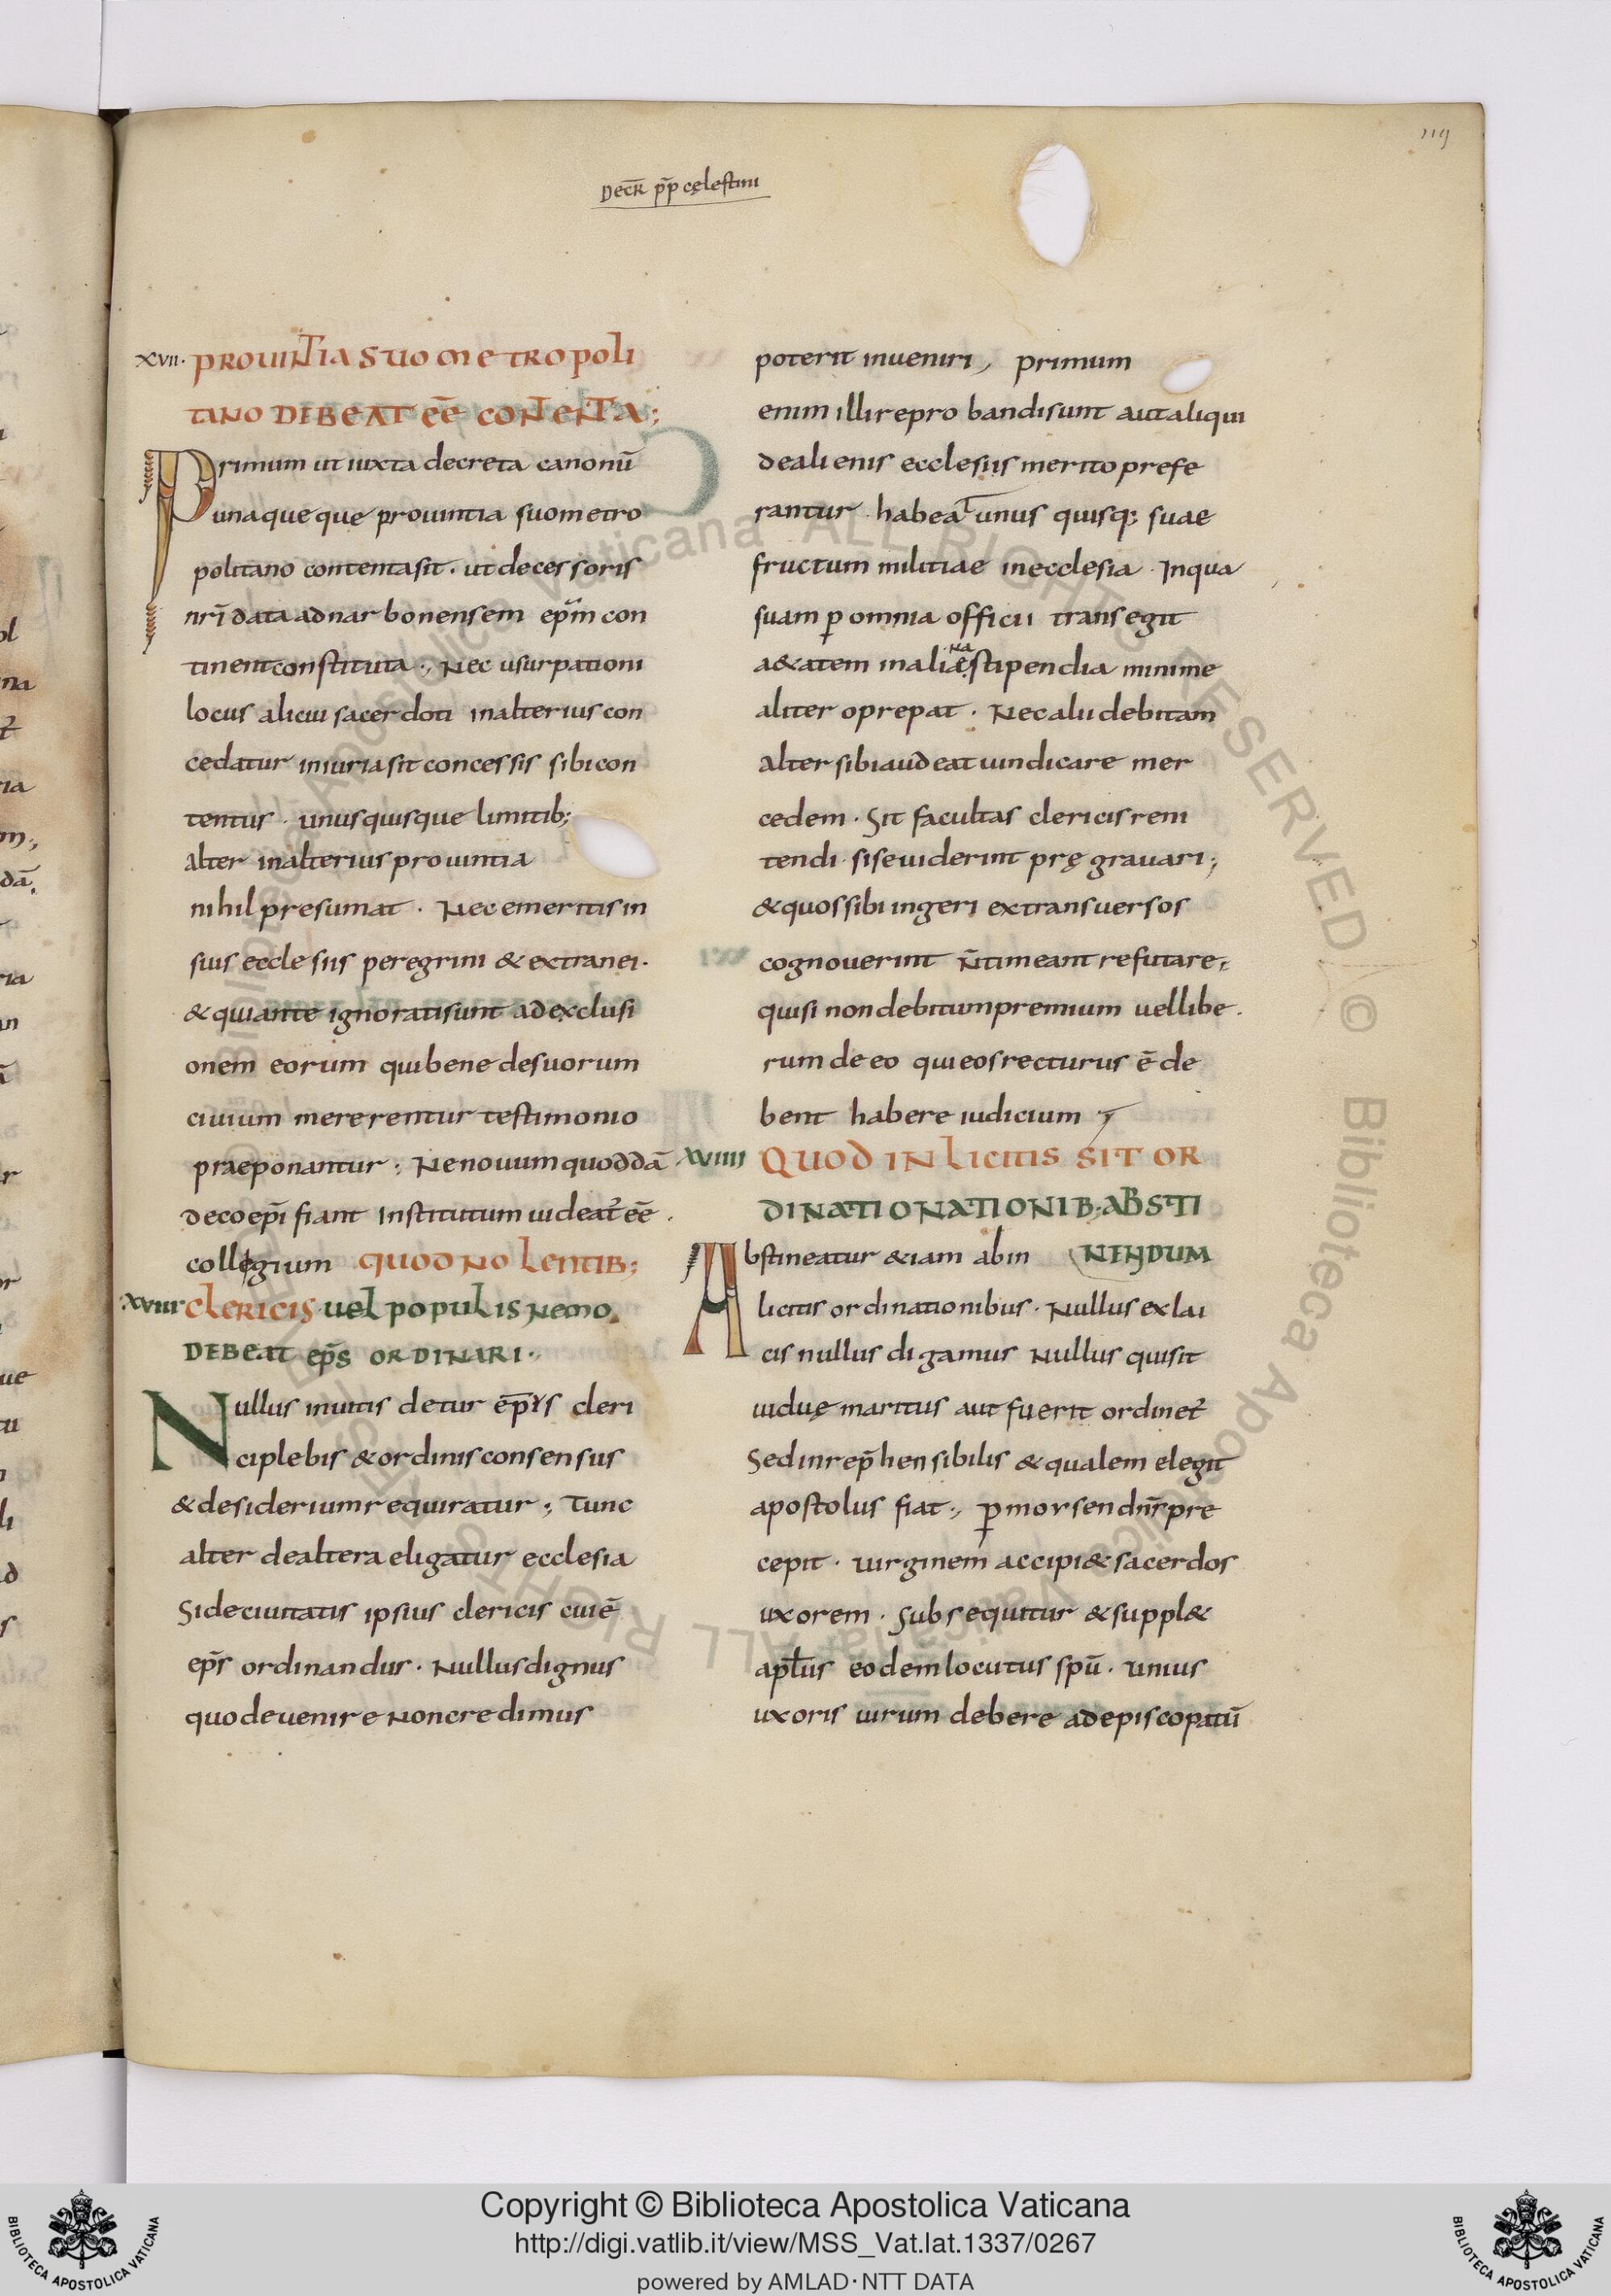 119
Decr̄ p̄p cęlestini
xvii. prouintia suo metropoli
tano debeat eē contenta;
Primum ut iuxta decreta canonū
unaqueque prouintia suo metro
politano contenta sit · ut decessoris
nr̄i data ad narbonensem ep̄m con
tinent constituta ·, Nec usurpationi
locus alicui sacerdoti in alterius con
cedatur iniuria sit concessis sibi con
tentus · unusquisque limitib;
alter in alterius prouintia
nihil presumat · Nec emeritis in
suis ecclesiis peregrini & extranei ·
& qui ante ignorati sunt ad exclusi
onem eorum qui bene de suorum
ciuium mererentur testimonio
praeponantur ; Ne nouum quoddā
de co ep̄i fiant Institutum uideat̄ eē .
collegium quod nolentib;
xviii clericis uel populis nemo
debeat ep̄s ordinari ·
Nullus inuitis detur ep̄ys cleri
ci plebis & ordinis consensus
& desiderium requiratur ; Tunc
alter de altera eligatur ecclesia
Si de ciuitatis ipsius clericis cui ē
ep̄s ordinandus · Nullus dignus
quod euenire Non credimus
poterit inueniri, primum
enim illi reprobandi sunt aut aliqui
de alienis ecclesiis merito prefe
rantur · habeat unus quisq; suae
fructum militiae in ecclesia · In qua
suam p̱ omnia officii transegit
a&atem in aliena stipendia minime
aliter oprepat · Nec alii debitam
alter sibi audeat uindicare mer
cedem · Sit facultas clericis reni
tendi · si se uiderint pręgrauari ;
& quos sibi ingeri ex transuersos
cognouerint n̄ timeant refutare ;
qui si non debitum premium uel libe .
rum de eo qui eos recturus ē de
bent habere iudicium
xviiii Quod inlicitis sit or
dinationationib; absti
Abstineatur &iam ab in nendum
licitis ordinationibus · Nullus ex lai
cis nullus digamus Nullus qui sit
uiduę maritus aut fuerit ordinet̄
Sed inrep̄hensibilis & qualem elegit
apostolus fiat ·, p̱ morsen dn̄r pre
cepit · uirginem accipi& sacerdos
uxorem · Subsequitur & suppl&
apl̄us eodem locutus spū · unius
uxoris uirum debere ad episcopatū
Copyright © Biblioteca Apostolica Vaticana
http://digi.vatlib.it/view/MSS_Vat.lat.1337/0267
powered by AMLAD·NTT DATA
BIBLIOTECA APOSTOLICA VATICANA
BIBLIOTECA APOSTOLICA VATICANA